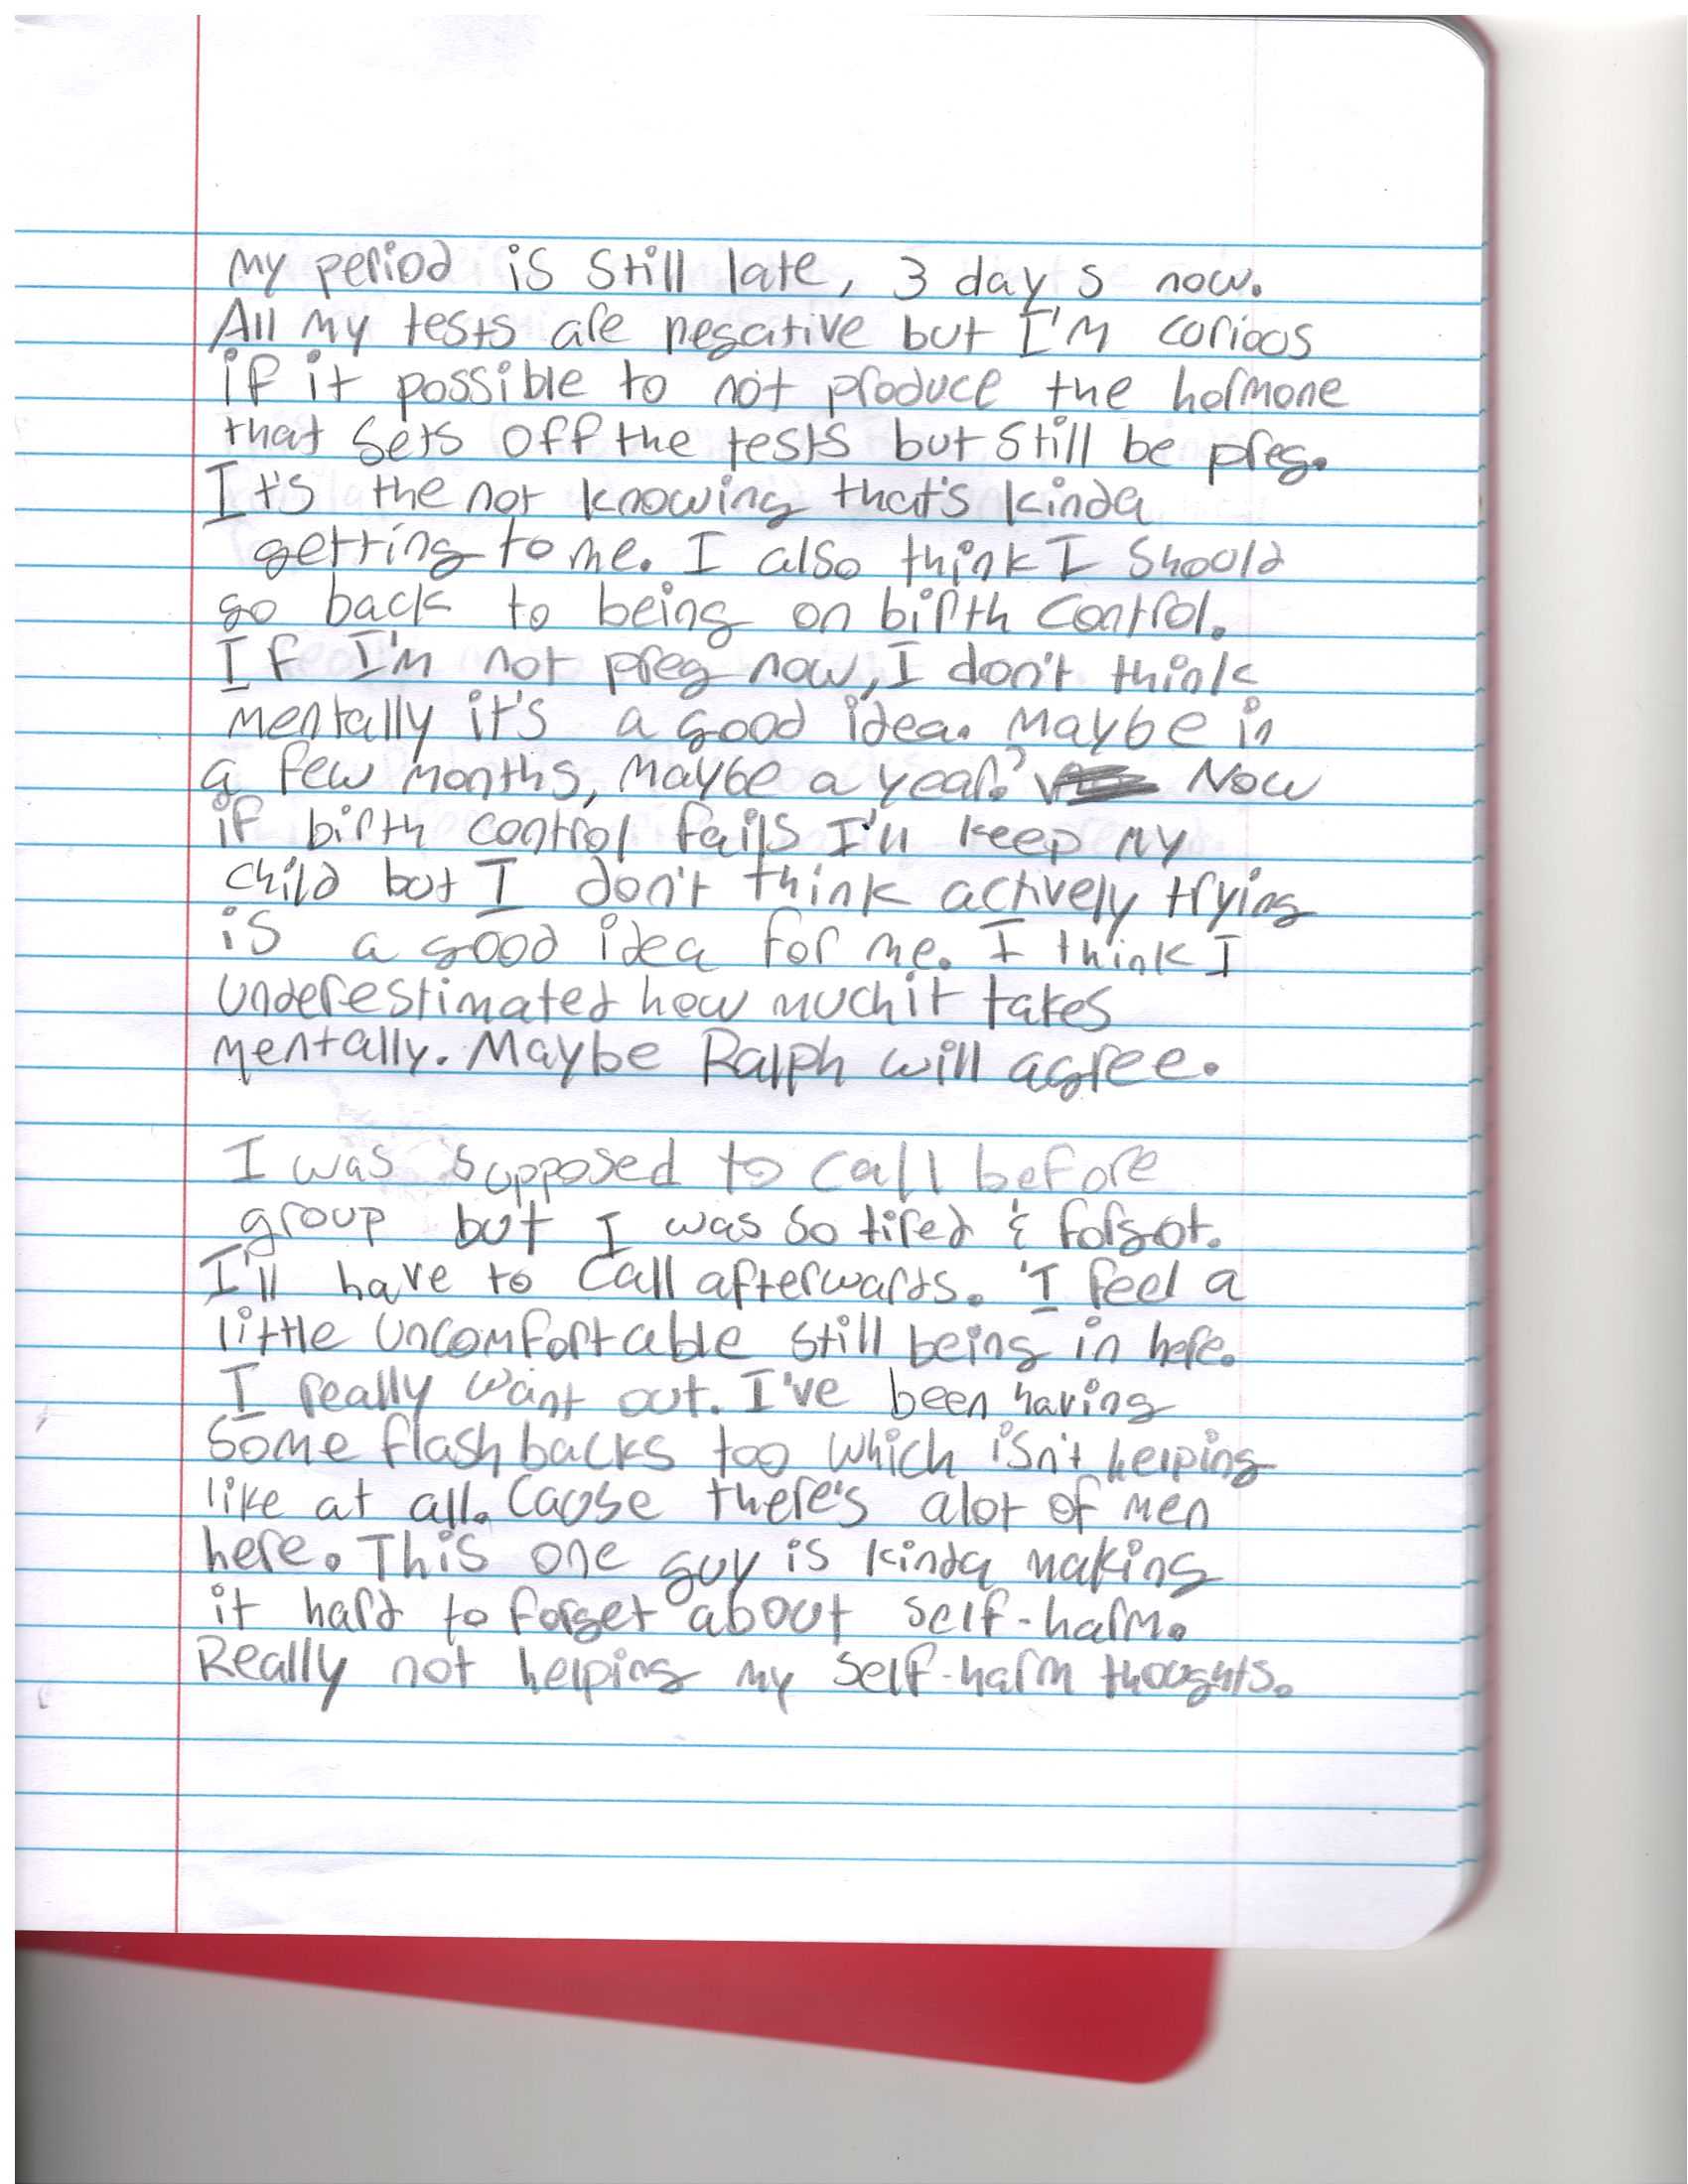 My period is still late, 3 days now.
All my tests are negative but I'm corious
if it possible to not produce the hormone
that sets off the tests but still be preg.
It's the not knowing that's kinda
getting to me. I also think I should
go back to being on birth control.
If I'm not preg now, I don't think
mentally it's a good idea. Maybe in
a few months, maybe a year? Now
if birth control fails I'll keep my
child but I don't think actively trying
is a good idea for me. I think I
underestimated how much it takes
mentally. Maybe Ralph will agree.
I was supposed to call before
group but I was so tired & forgot.
I'll have to call afterwards. I feel a
little uncomfortable still being in here.
I really want out. I've been having
some flashbacks too which isn't helping
like at all. Cause there's alot of men
here. This one guy is kinda making
it hard to forget about self-harm.
Really not helping my self-harm thoughts.